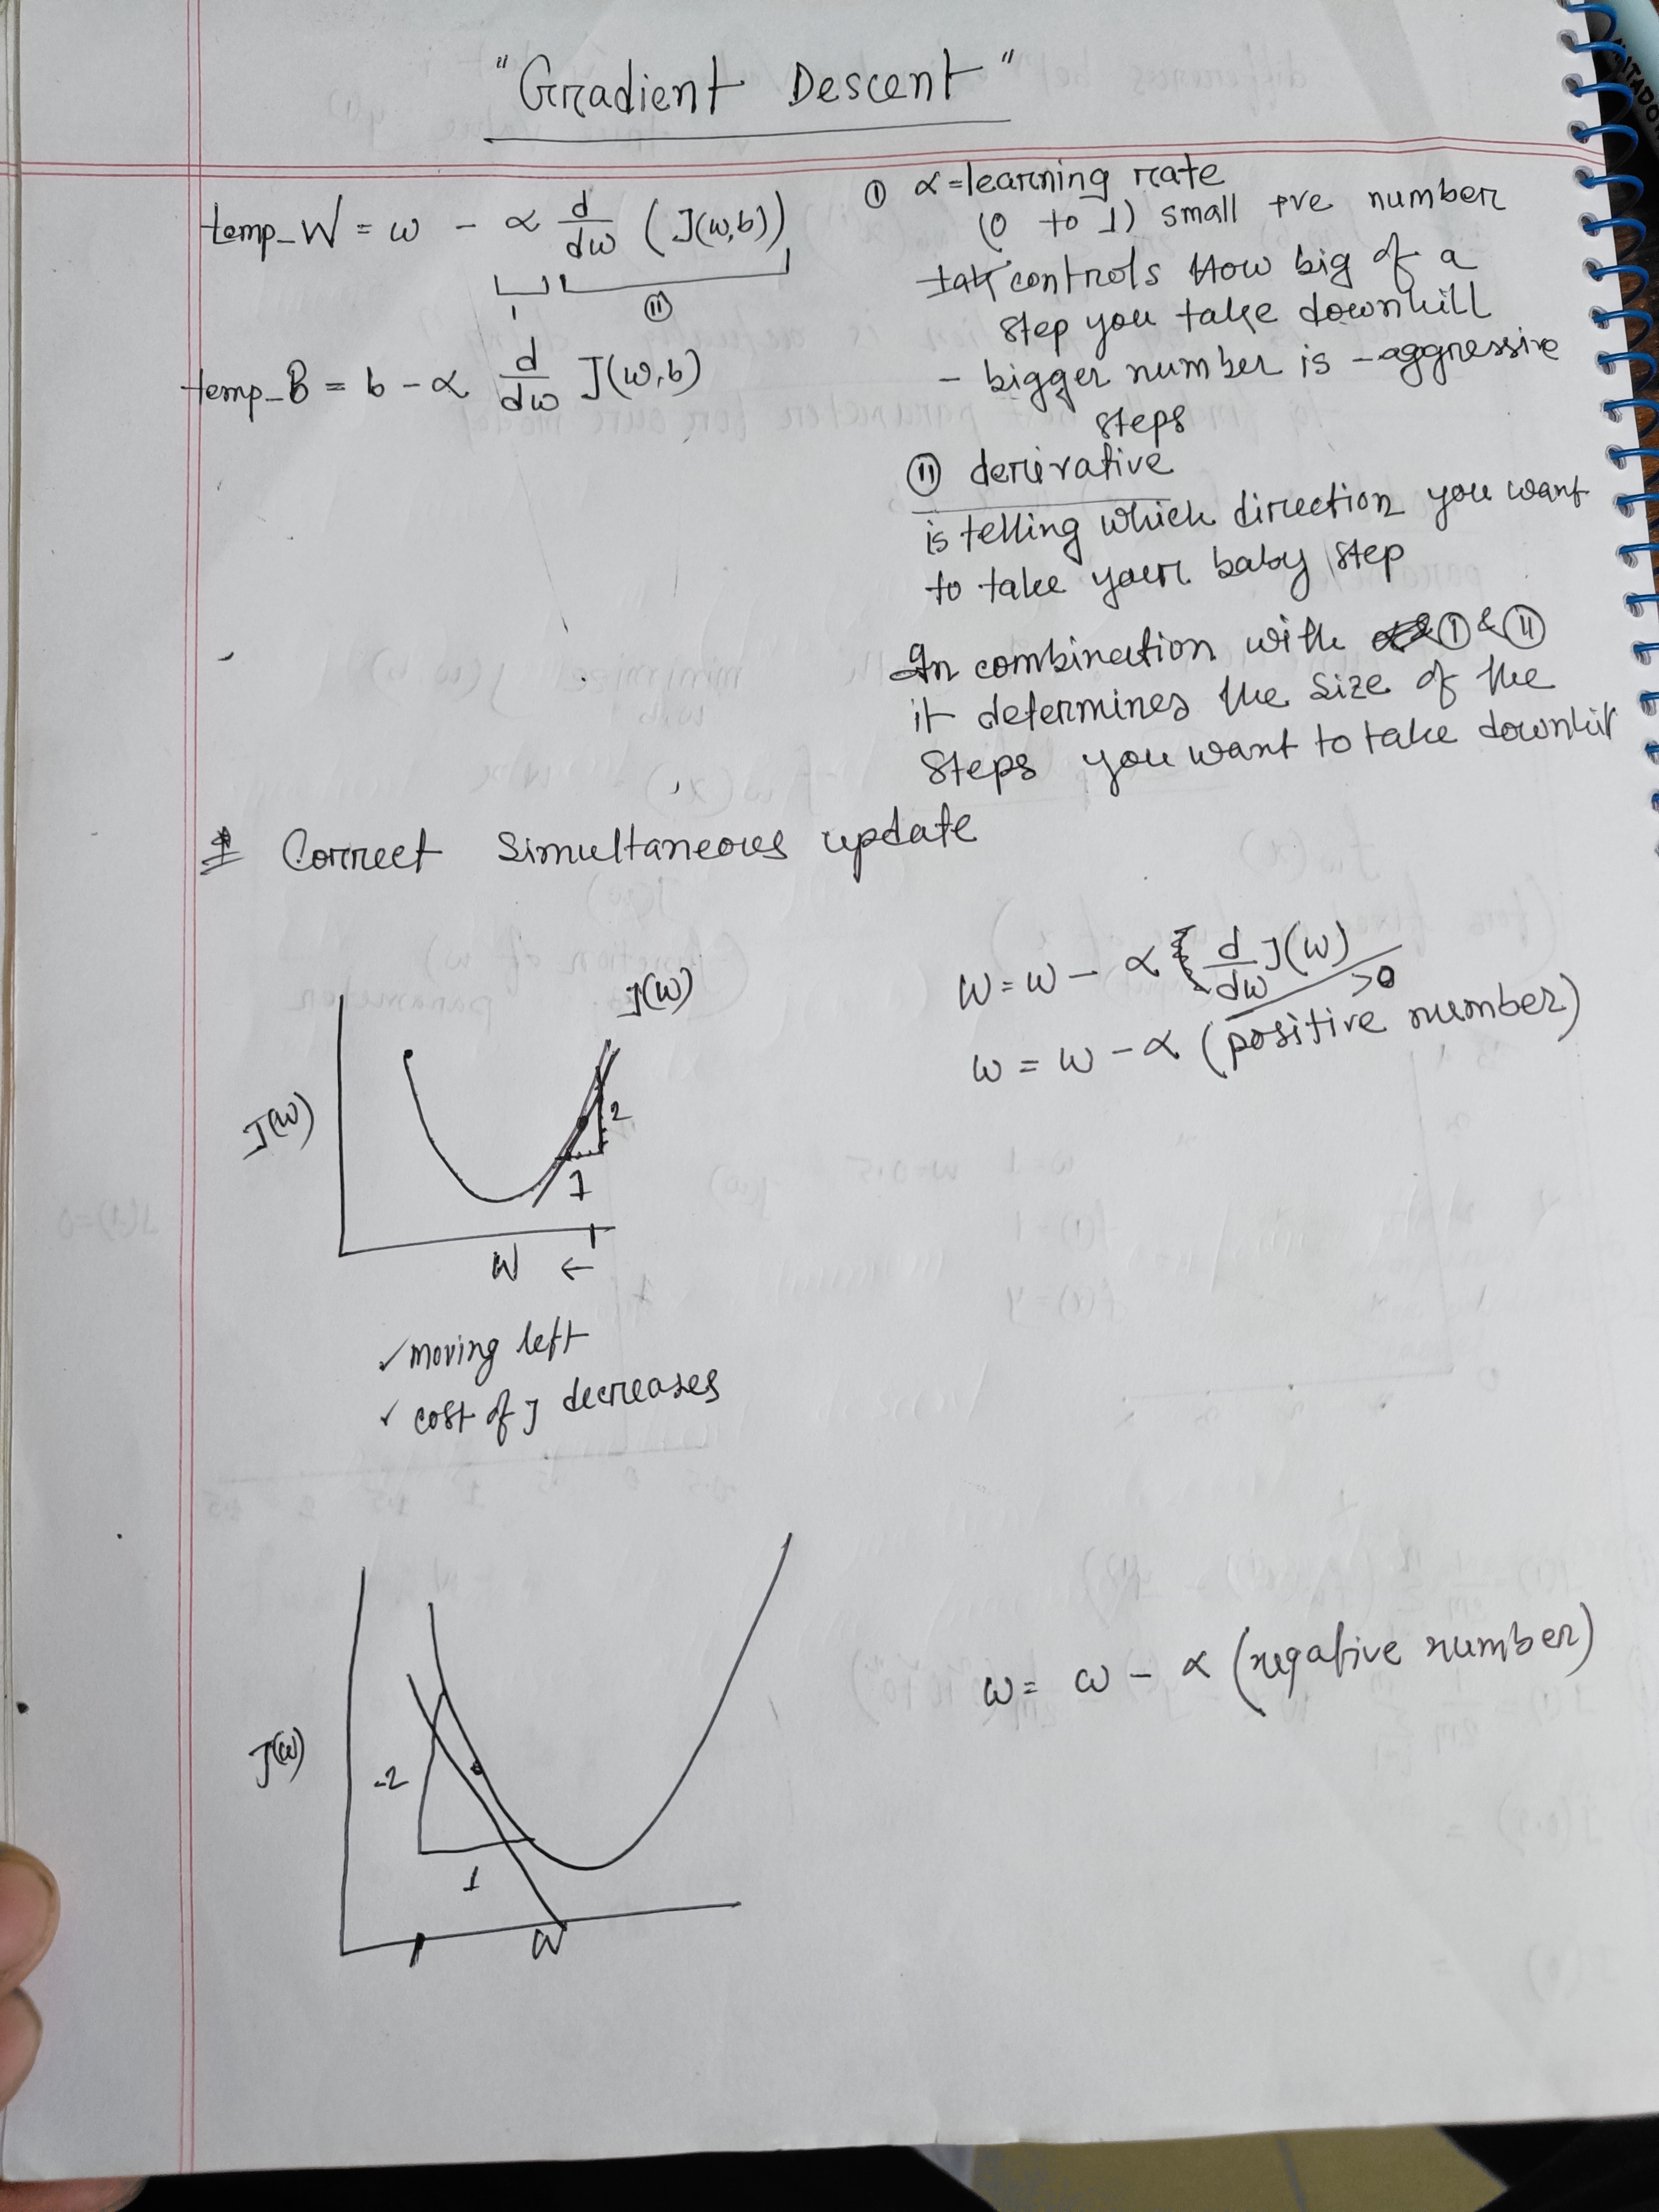 "Gradient Descent"
temp_W = w - α d/dw (J(w,b))
I II
temp_B = b - α d/dw J(w,b)
① α = learning rate
(0 to 1) small +ve number
controls How big of a
step you take downhill
- bigger number is - aggressive
steps
② derivative
is telling which direction you want
to take your baby step
In combination with ① & ②
it determines the size of the
steps you want to take downhill
# Correct Simultaneous update
J(w)
J(w)
2
1
W ←
w = w - α d/dw J(w) >0
w = w - α (positive number)
✓ moving left
✓ cost of J decreases
J(w)
-2
1
W
w = w - α (negative number)